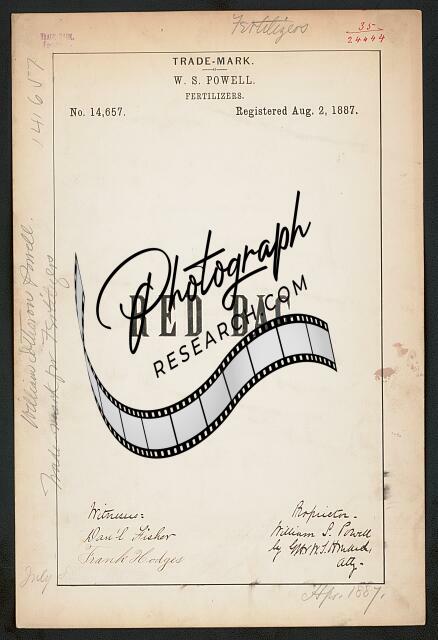 Fertilizers
35
24444
TRADE-MARK.
W. S. POWELL.
FERTILIZERS.
No. 14,657.
Registered Aug. 2, 1887.
14657
William Powell.
Trade mark for Fertilizers
Photograph
RESEARCH.COM
RED BAG
Witnesses:
Dan'l Fisher
Frank Hodges
Proprietor.
William S. Powell
by
Atty.
July
1887.